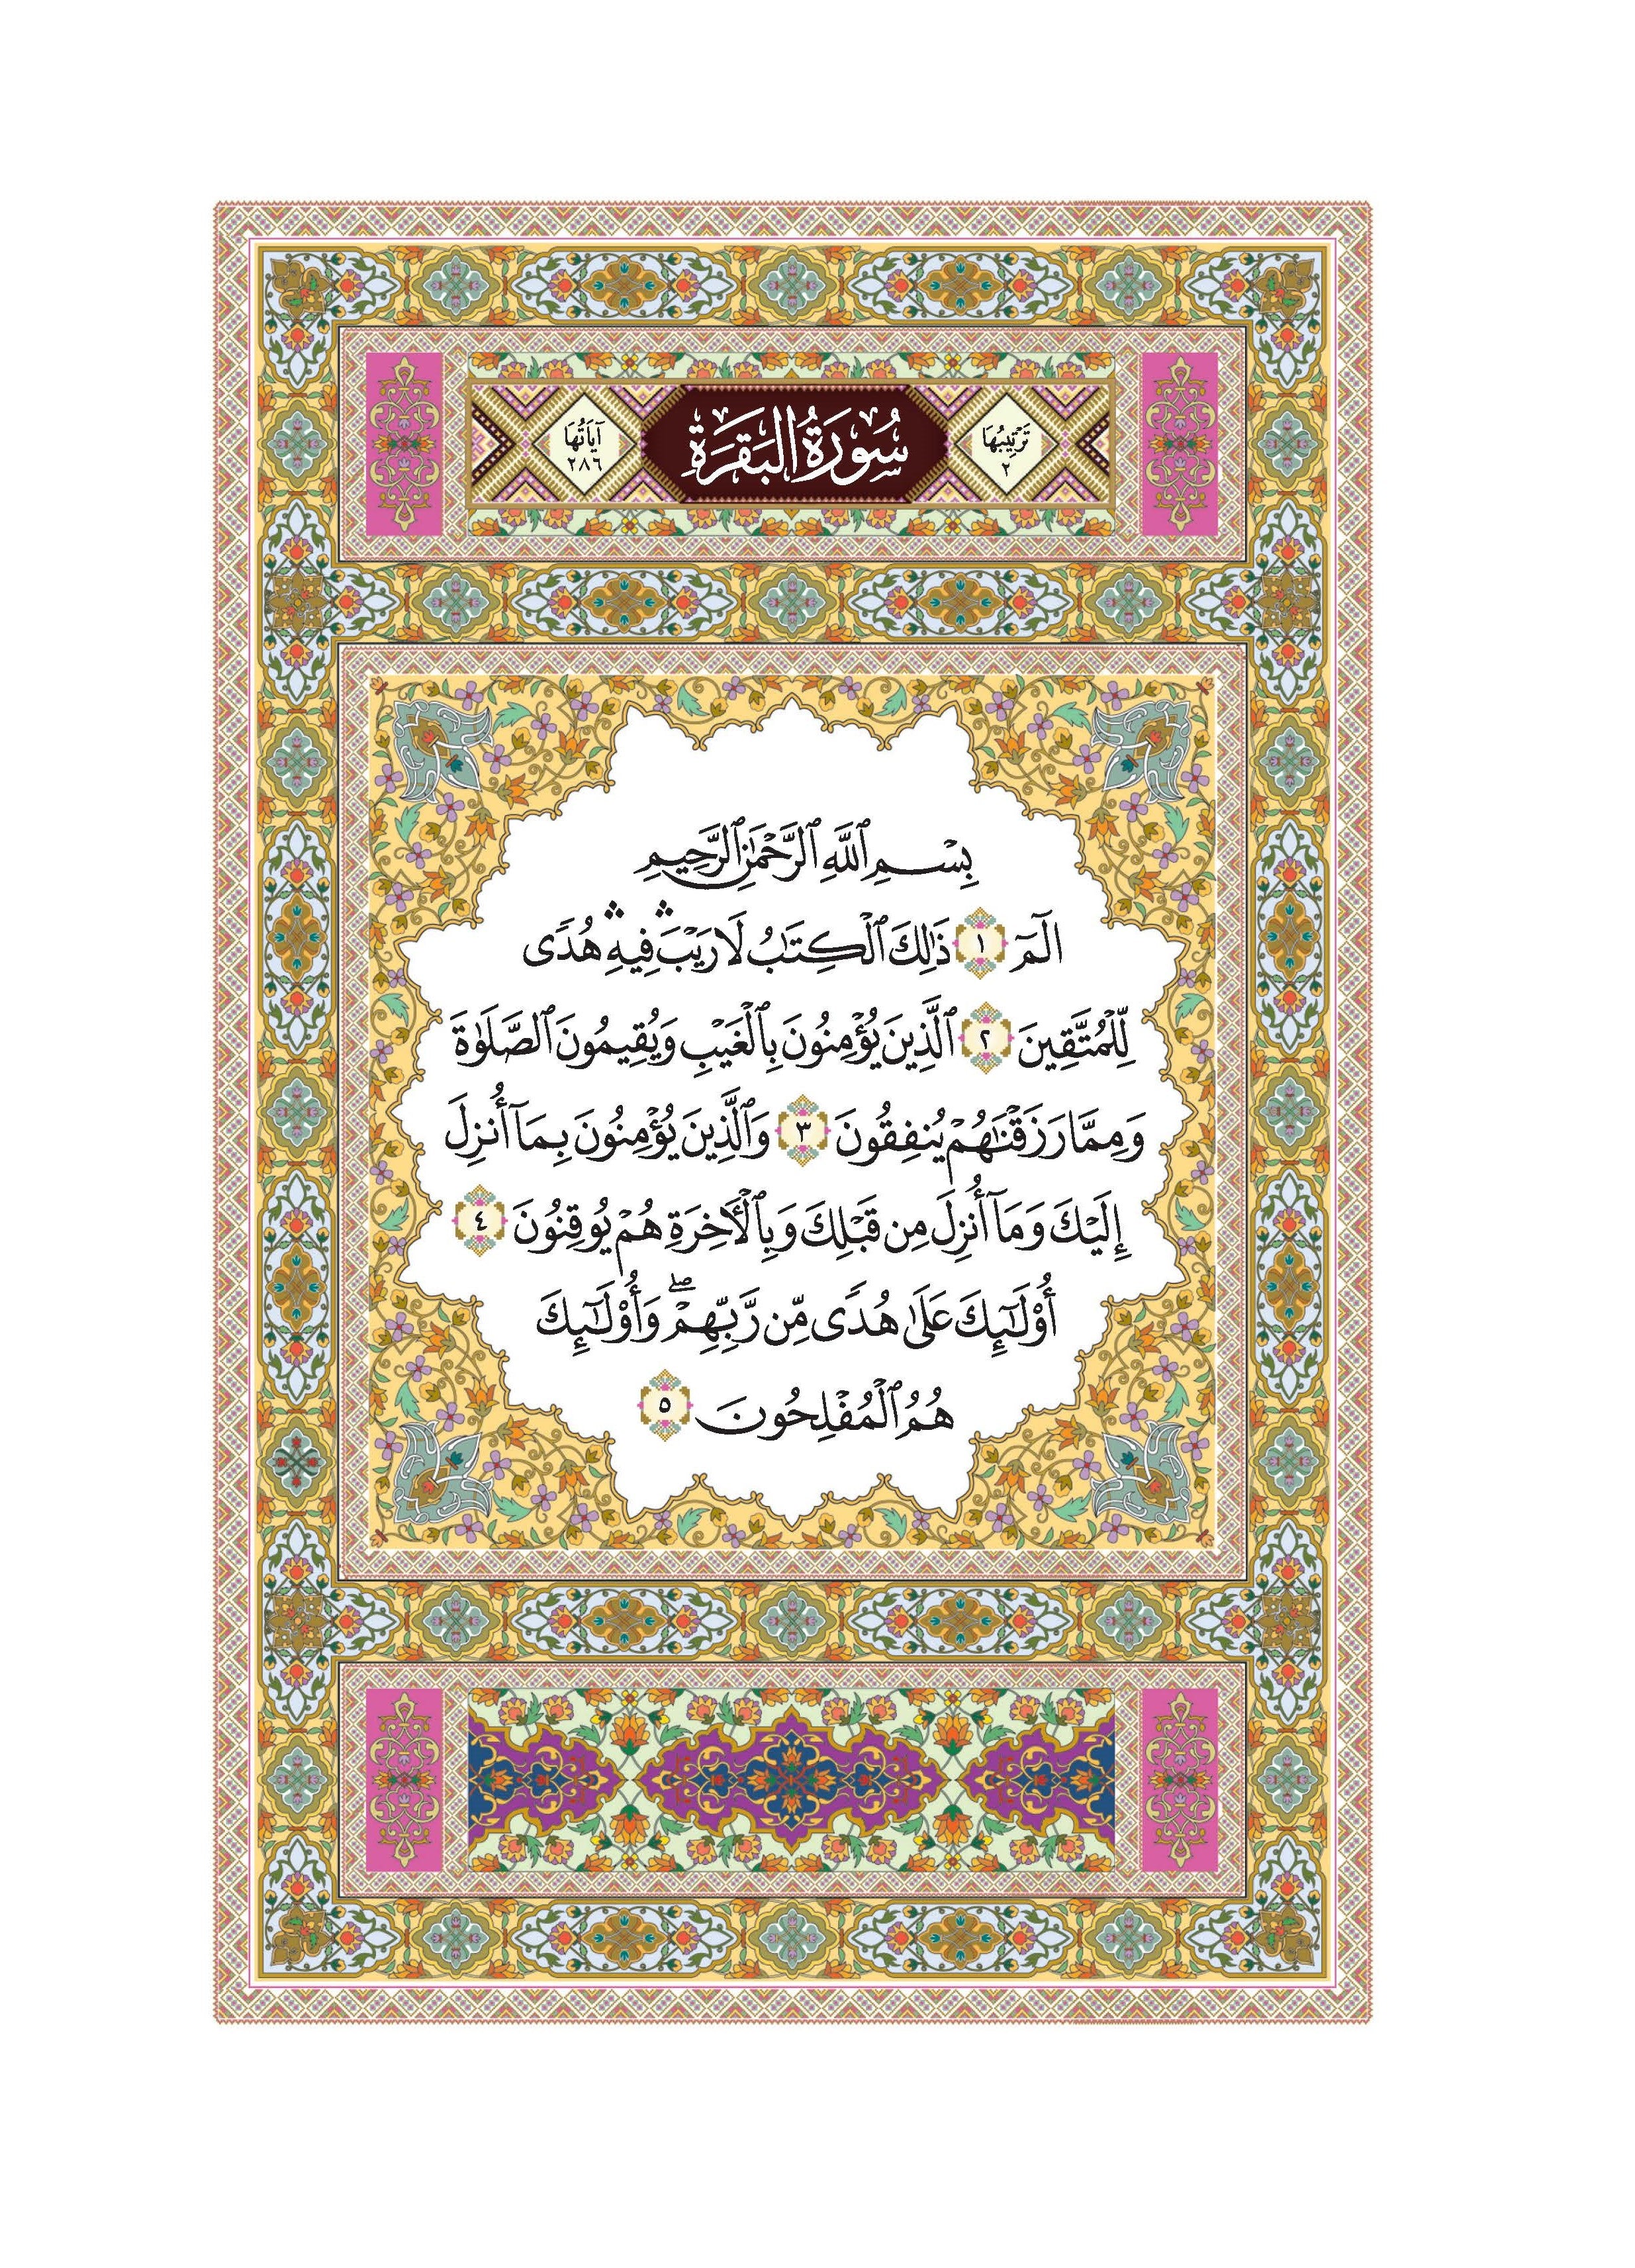 ترتيبها
٢
سُورَةُ البَقَرَة
آياتها
٢٨٦
بِسْمِ ٱللَّهِ ٱلرَّحْمَٰنِ ٱلرَّحِيمِ
الٓمٓ ١ ذَٰلِكَ ٱلْكِتَٰبُ لَا رَيْبَۛ فِيهِۛ هُدًى
لِّلْمُتَّقِينَ ٢ ٱلَّذِينَ يُؤْمِنُونَ بِٱلْغَيْبِ وَيُقِيمُونَ ٱلصَّلَوٰةَ
وَمِمَّا رَزَقْنَٰهُمْ يُنفِقُونَ ٣ وَٱلَّذِينَ يُؤْمِنُونَ بِمَآ أُنزِلَ
إِلَيْكَ وَمَآ أُنزِلَ مِن قَبْلِكَ وَبِٱلْأَخِرَةِ هُمْ يُوقِنُونَ ٤
أُوْلَٰٓئِكَ عَلَىٰ هُدًى مِّن رَّبِّهِمْۖ وَأُوْلَٰٓئِكَ
هُمُ ٱلْمُفْلِحُونَ ٥